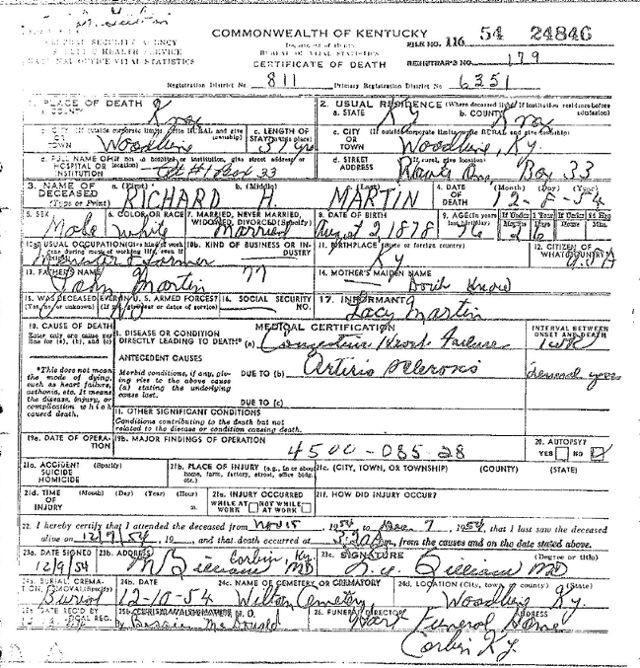 COMMONWEALTH OF KENTUCKY
FILE NO. 116 54 24846
BUREAU OF VITAL STATISTICS
REGISTRAR'S NO. 179
CERTIFICATE OF DEATH
Registration District No. 811 Primary Registration District No. 6351
1. PLACE OF DEATH
a. COUNTY Knox
2. USUAL RESIDENCE (Where deceased lived. If institution: residence before admission)
a. STATE Ky b. COUNTY Knox
b. CITY OR TOWN Woodbine
c. LENGTH OF STAY (in this place)
c. CITY OR TOWN Woodbine, Ky.
d. FULL NAME OF HOSPITAL OR INSTITUTION Rt #1 Box 33
d. STREET ADDRESS (If rural, give location) Box 33
3. NAME OF DECEASED (Type or Print)
a. (First) RICHARD b. (Middle) H. c. (Last) MARTIN
4. DATE OF DEATH (Month) (Day) (Year) 12-8-54
5. SEX Male
6. COLOR OR RACE White
7. MARRIED, NEVER MARRIED, WIDOWED, DIVORCED (Specify) Married
8. DATE OF BIRTH August 2 1878
9. AGE (In years last birthday) 76
10a. USUAL OCCUPATION Farmer
10b. KIND OF BUSINESS OR INDUSTRY
11. BIRTHPLACE (State or foreign country) Ky
12. CITIZEN OF WHAT COUNTRY? U.S.A
13. FATHER'S NAME John Martin
14. MOTHER'S MAIDEN NAME Don't Know
15. WAS DECEASED EVER IN U. S. ARMED FORCES? No
16. SOCIAL SECURITY NO.
17. INFORMANT Lacy Martin
18. CAUSE OF DEATH
Enter only one cause per line for (a), (b), and (c)
MEDICAL CERTIFICATION
INTERVAL BETWEEN ONSET AND DEATH
I. DISEASE OR CONDITION DIRECTLY LEADING TO DEATH* (a) Congestive Heart Failure 1 wk
*This does not mean the mode of dying, such as heart failure, asthenia, etc. It means the disease, injury, or complication which caused death.
ANTECEDENT CAUSES
Morbid conditions, if any, giving rise to the above cause (a) stating the underlying cause last.
DUE TO (b) Arterio sclerosis several years
DUE TO (c)
II. OTHER SIGNIFICANT CONDITIONS
Conditions contributing to the death but not related to the disease or condition causing death.
19a. DATE OF OPERATION
19b. MAJOR FINDINGS OF OPERATION
4500-085 28
20. AUTOPSY?
YES NO
21a. ACCIDENT SUICIDE HOMICIDE (Specify)
21b. PLACE OF INJURY (e.g., in or about home, farm, factory, street, office bldg., etc.)
21c. (CITY, TOWN, OR TOWNSHIP) (COUNTY) (STATE)
21d. TIME OF INJURY (Month) (Day) (Year) (Hour)
21e. INJURY OCCURRED
WHILE AT WORK NOT WHILE AT WORK
21f. HOW DID INJURY OCCUR?
22. I hereby certify that I attended the deceased from Nov 15, 1954, to Dec 7, 1954, that I last saw the deceased
alive on 12/9/54, 19 , and that death occurred at m., from the causes and on the date stated above.
23a. DATE SIGNED 12/9/54
23b. ADDRESS Corbin, Ky.
23c. SIGNATURE (Degree or title) MD
24a. BURIAL, CREMATION, REMOVAL (Specify) Burial
24b. DATE 12-10-54
24c. NAME OF CEMETERY OR CREMATORY Wilton Cemetery
24d. LOCATION (City, town, county) (State) Woodbine Ky.
25a. DATE REC'D BY LOCAL REG.
25b. Bessie McDonald
26. FUNERAL DIRECTOR ADDRESS
Hart Funeral Home
Corbin Ky.